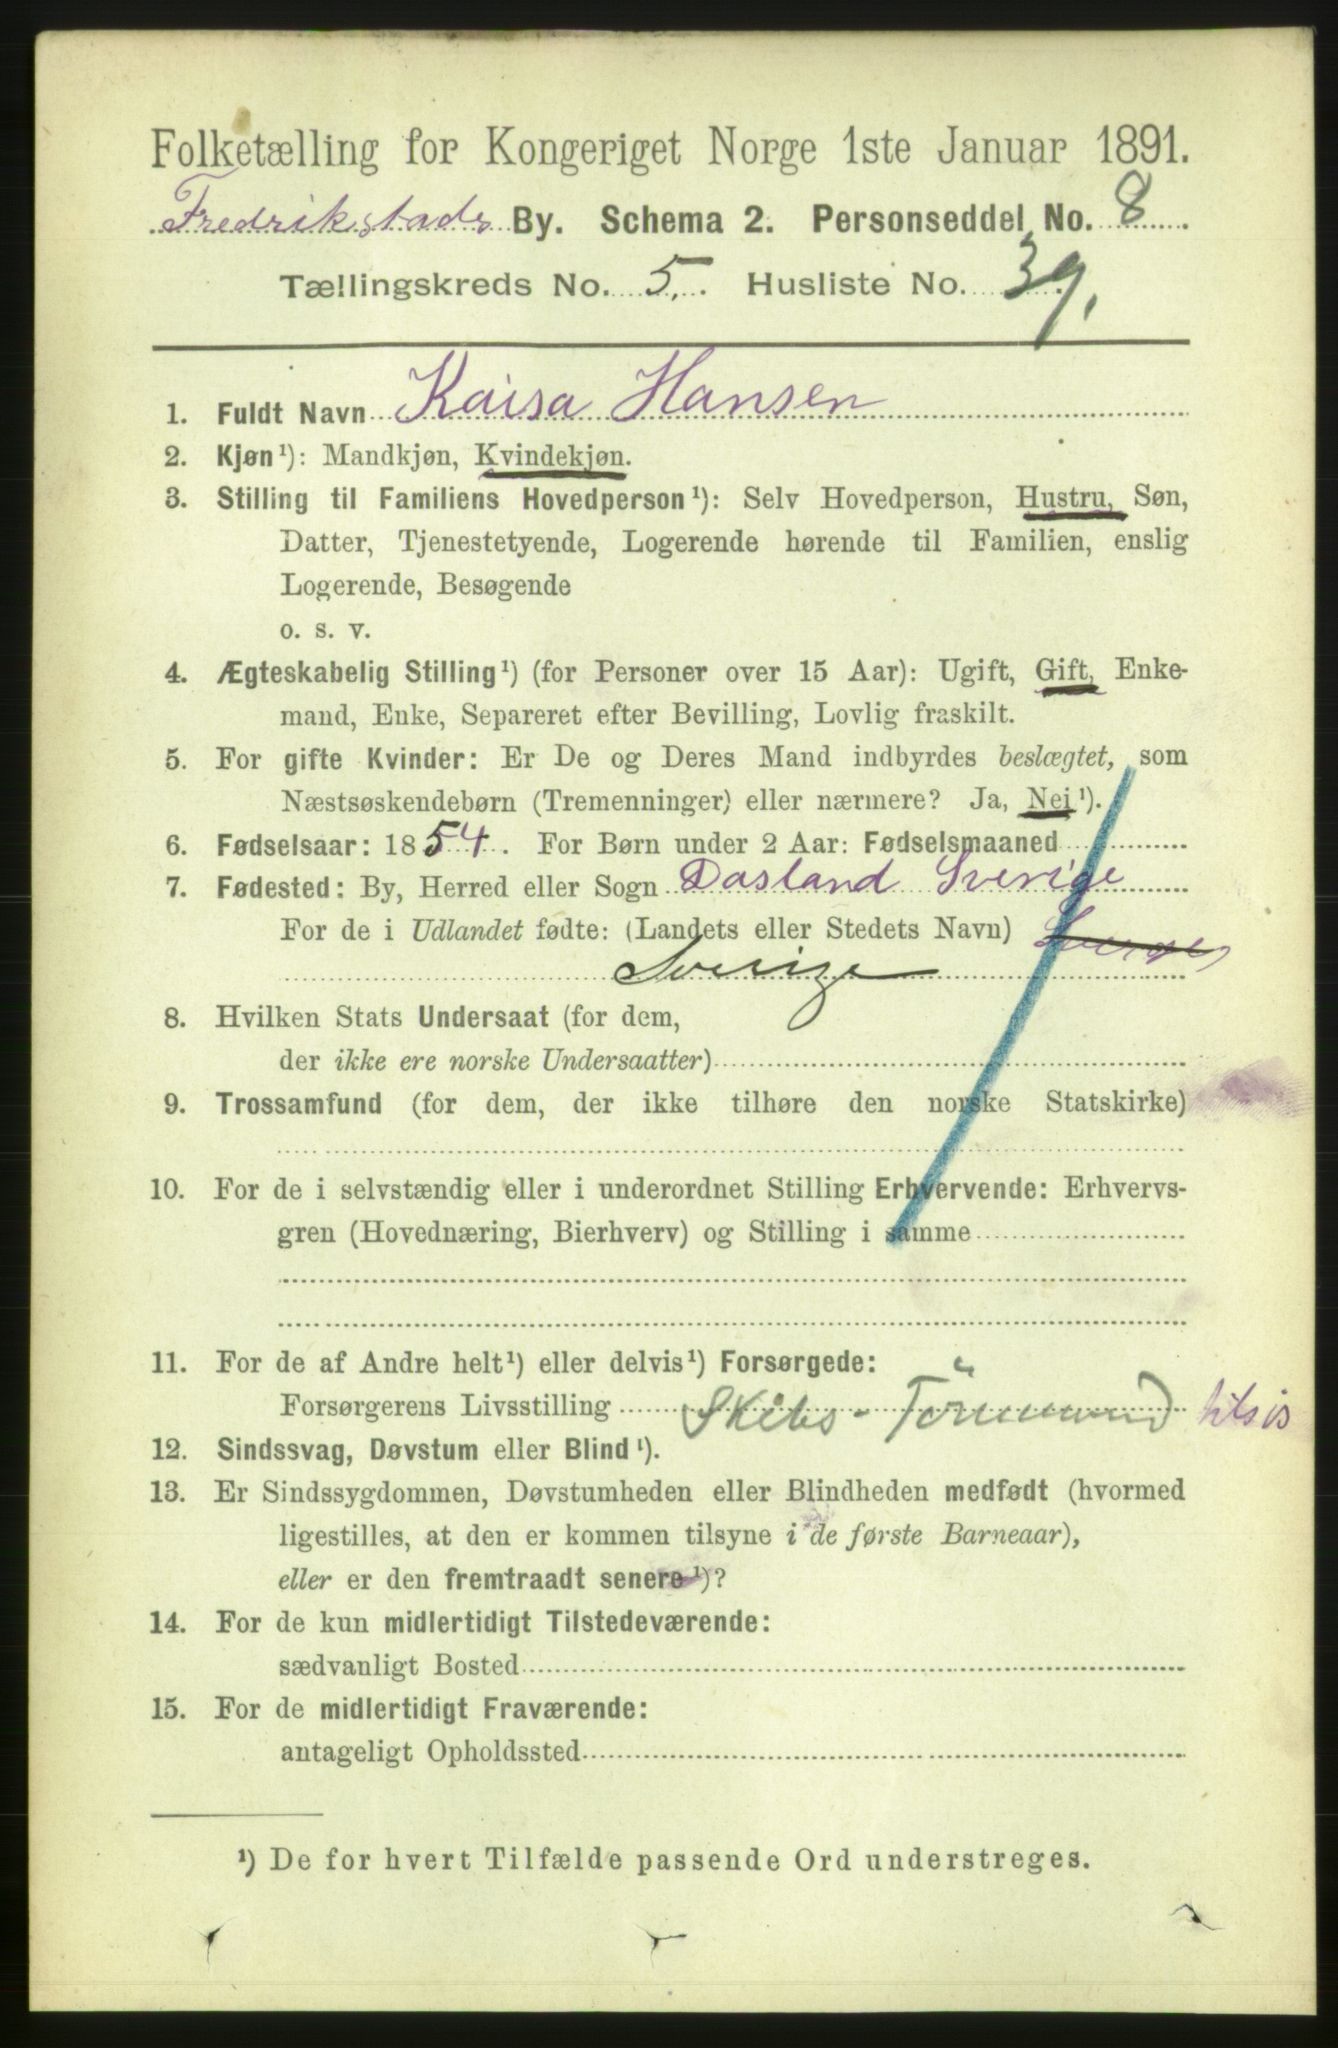 Folketælling for Kongeriget Norge 1ste Januar 1891.
Fredrikstads By. Schema 2. Personseddel No. 8
Tællingskreds No. 5. Husliste No. 39.
1. Fuldt Navn Kaisa Hansen
2. Kjøn¹): Mandkjøn, Kvindekjøn.
3. Stilling til Familiens Hovedperson¹): Selv Hovedperson, Hustru, Søn,
Datter, Tjenestetyende, Logerende hørende til Familien, enslig
Logerende, Besøgende
o. s. v.
4. Ægteskabelig Stilling¹) (for Personer over 15 Aar): Ugift, Gift, Enke-
mand, Enke, Separeret efter Bevilling, Lovlig fraskilt.
5. For gifte Kvinder: Er De og Deres Mand indbyrdes beslægtet, som
Næstsøskendebørn (Tremenninger) eller nærmere? Ja, Nei¹).
6. Fødselsaar: 1854. For Børn under 2 Aar: Fødselsmaaned
7. Fødested: By, Herred eller Sogn Dasland Sverige
For de i Udlandet fødte: (Landets eller Stedets Navn)
Sverige
8. Hvilken Stats Undersaat (for dem,
der ikke ere norske Undersaatter)
9. Trossamfund (for dem, der ikke tilhøre den norske Statskirke)
10. For de i selvstændig eller i underordnet Stilling Erhvervende: Erhvervs-
gren (Hovednæring, Bierhverv) og Stilling i samme
11. For de af Andre helt¹) eller delvis¹) Forsørgede:
Forsørgerens Livsstilling Skibs-Tömmermand
12. Sindssvag, Døvstum eller Blind¹).
13. Er Sindssygdommen, Døvstumheden eller Blindheden medfødt (hvormed
ligestilles, at den er kommen tilsyne i de første Barneaar),
eller er den fremtraadt senere¹)?
14. For de kun midlertidigt Tilstedeværende:
sædvanligt Bosted
15. For de midlertidigt Fraværende:
antageligt Opholdssted
¹) De for hvert Tilfælde passende Ord understreges.